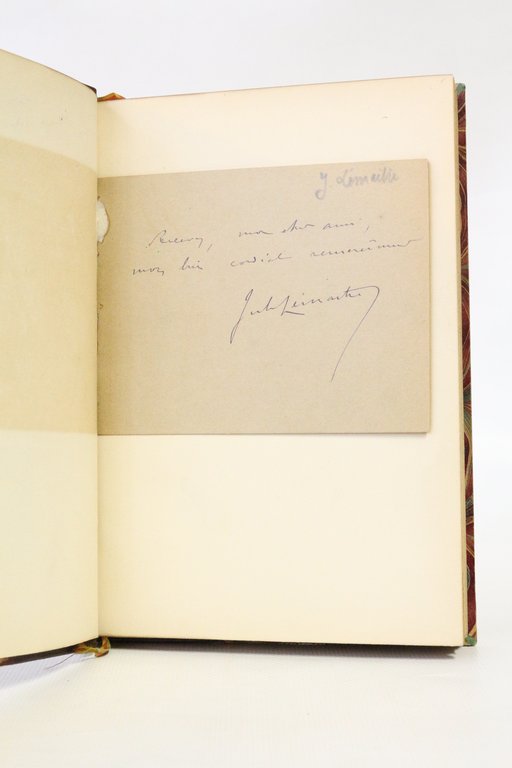 J. Lemaitre
Recevez, mon cher ami,
mon bien cordial remerciement
Jules Lemaitre